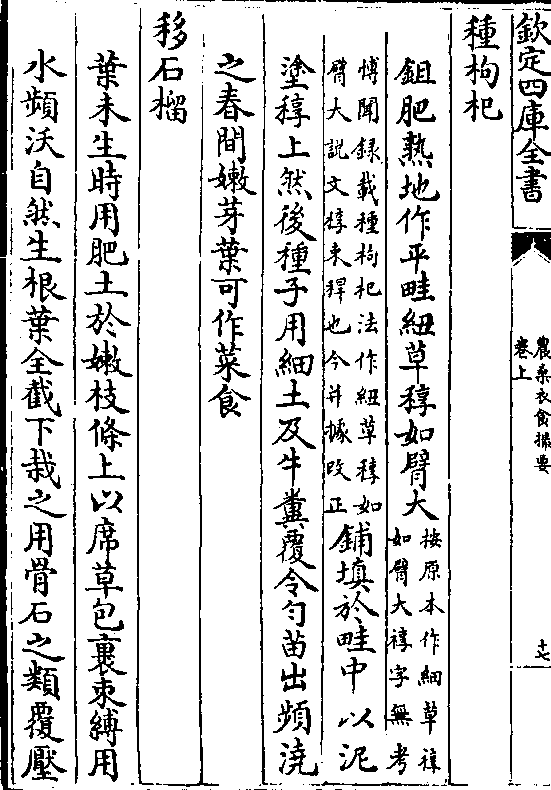 欽定四庫全書
農桑衣食撮要
卷上
十七
種枸杞
鉏肥熟地作平畦紐草稕如臂大
按原本作細草䅎
如臂大䅎字無考
博聞録載種枸杞法作紐草稕如
臂大說文稕束稈也今并據改正
鋪填於畦中以泥
塗稕上然後種子用細土及牛糞覆令勻苗出頻澆
之春間嫩芽葉可作菜食
移石榴
葉未生時用肥土於嫩枝條上以席草包裹束縛用
水頻沃自然生根葉全截下栽之用骨石之類覆壓